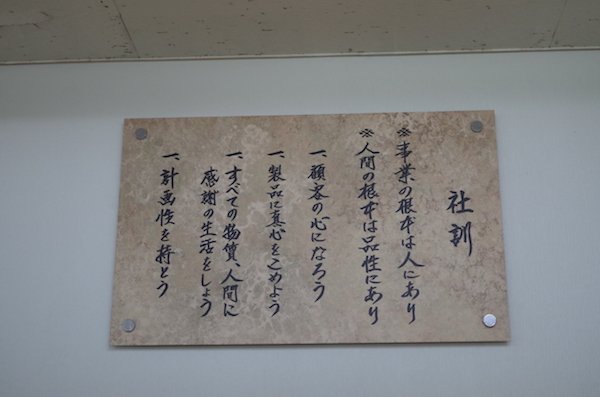 社訓
※事業の根本は人にあり
※人間の根本は品性にあり
一、顧客の心になろう
一、製品に真心をこめよう
一、すべての物質、人間に
感謝の生活をしょう
一、計画性を持とう